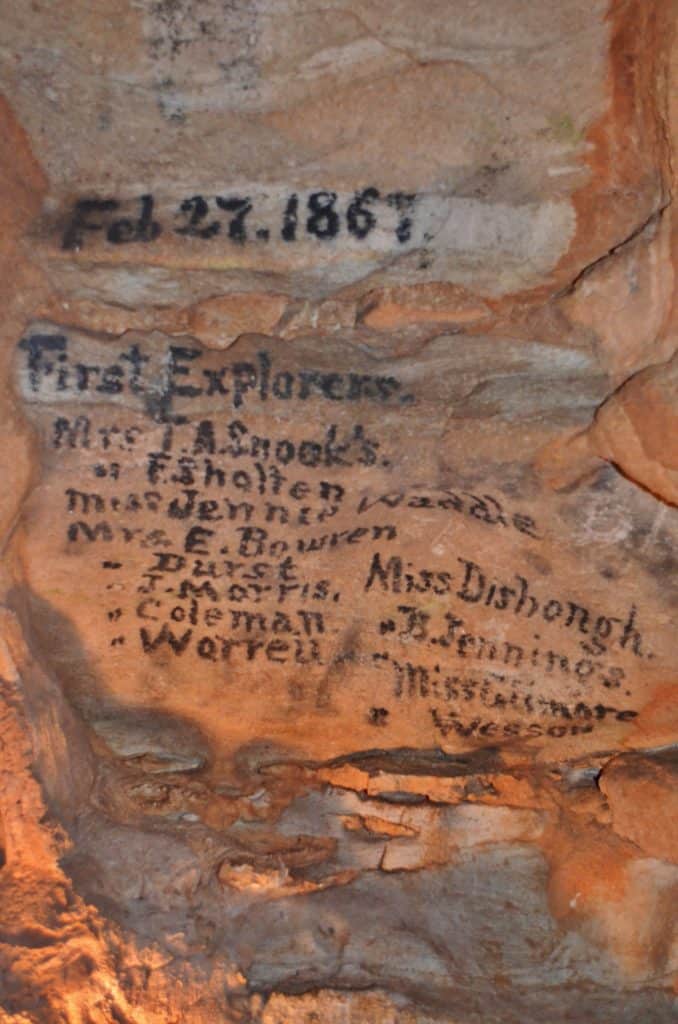 Feb 27. 1867.
First Explorers.
Mrs T.A. Snook's.
" F. Sholten
Miss Jennie Waddle
Mrs. E. Bowren
" Durst
" J. Morris.
" Coleman
" Warren
Miss Dishongh.
" B. Jennings.
Miss Gilmore
" Wesson